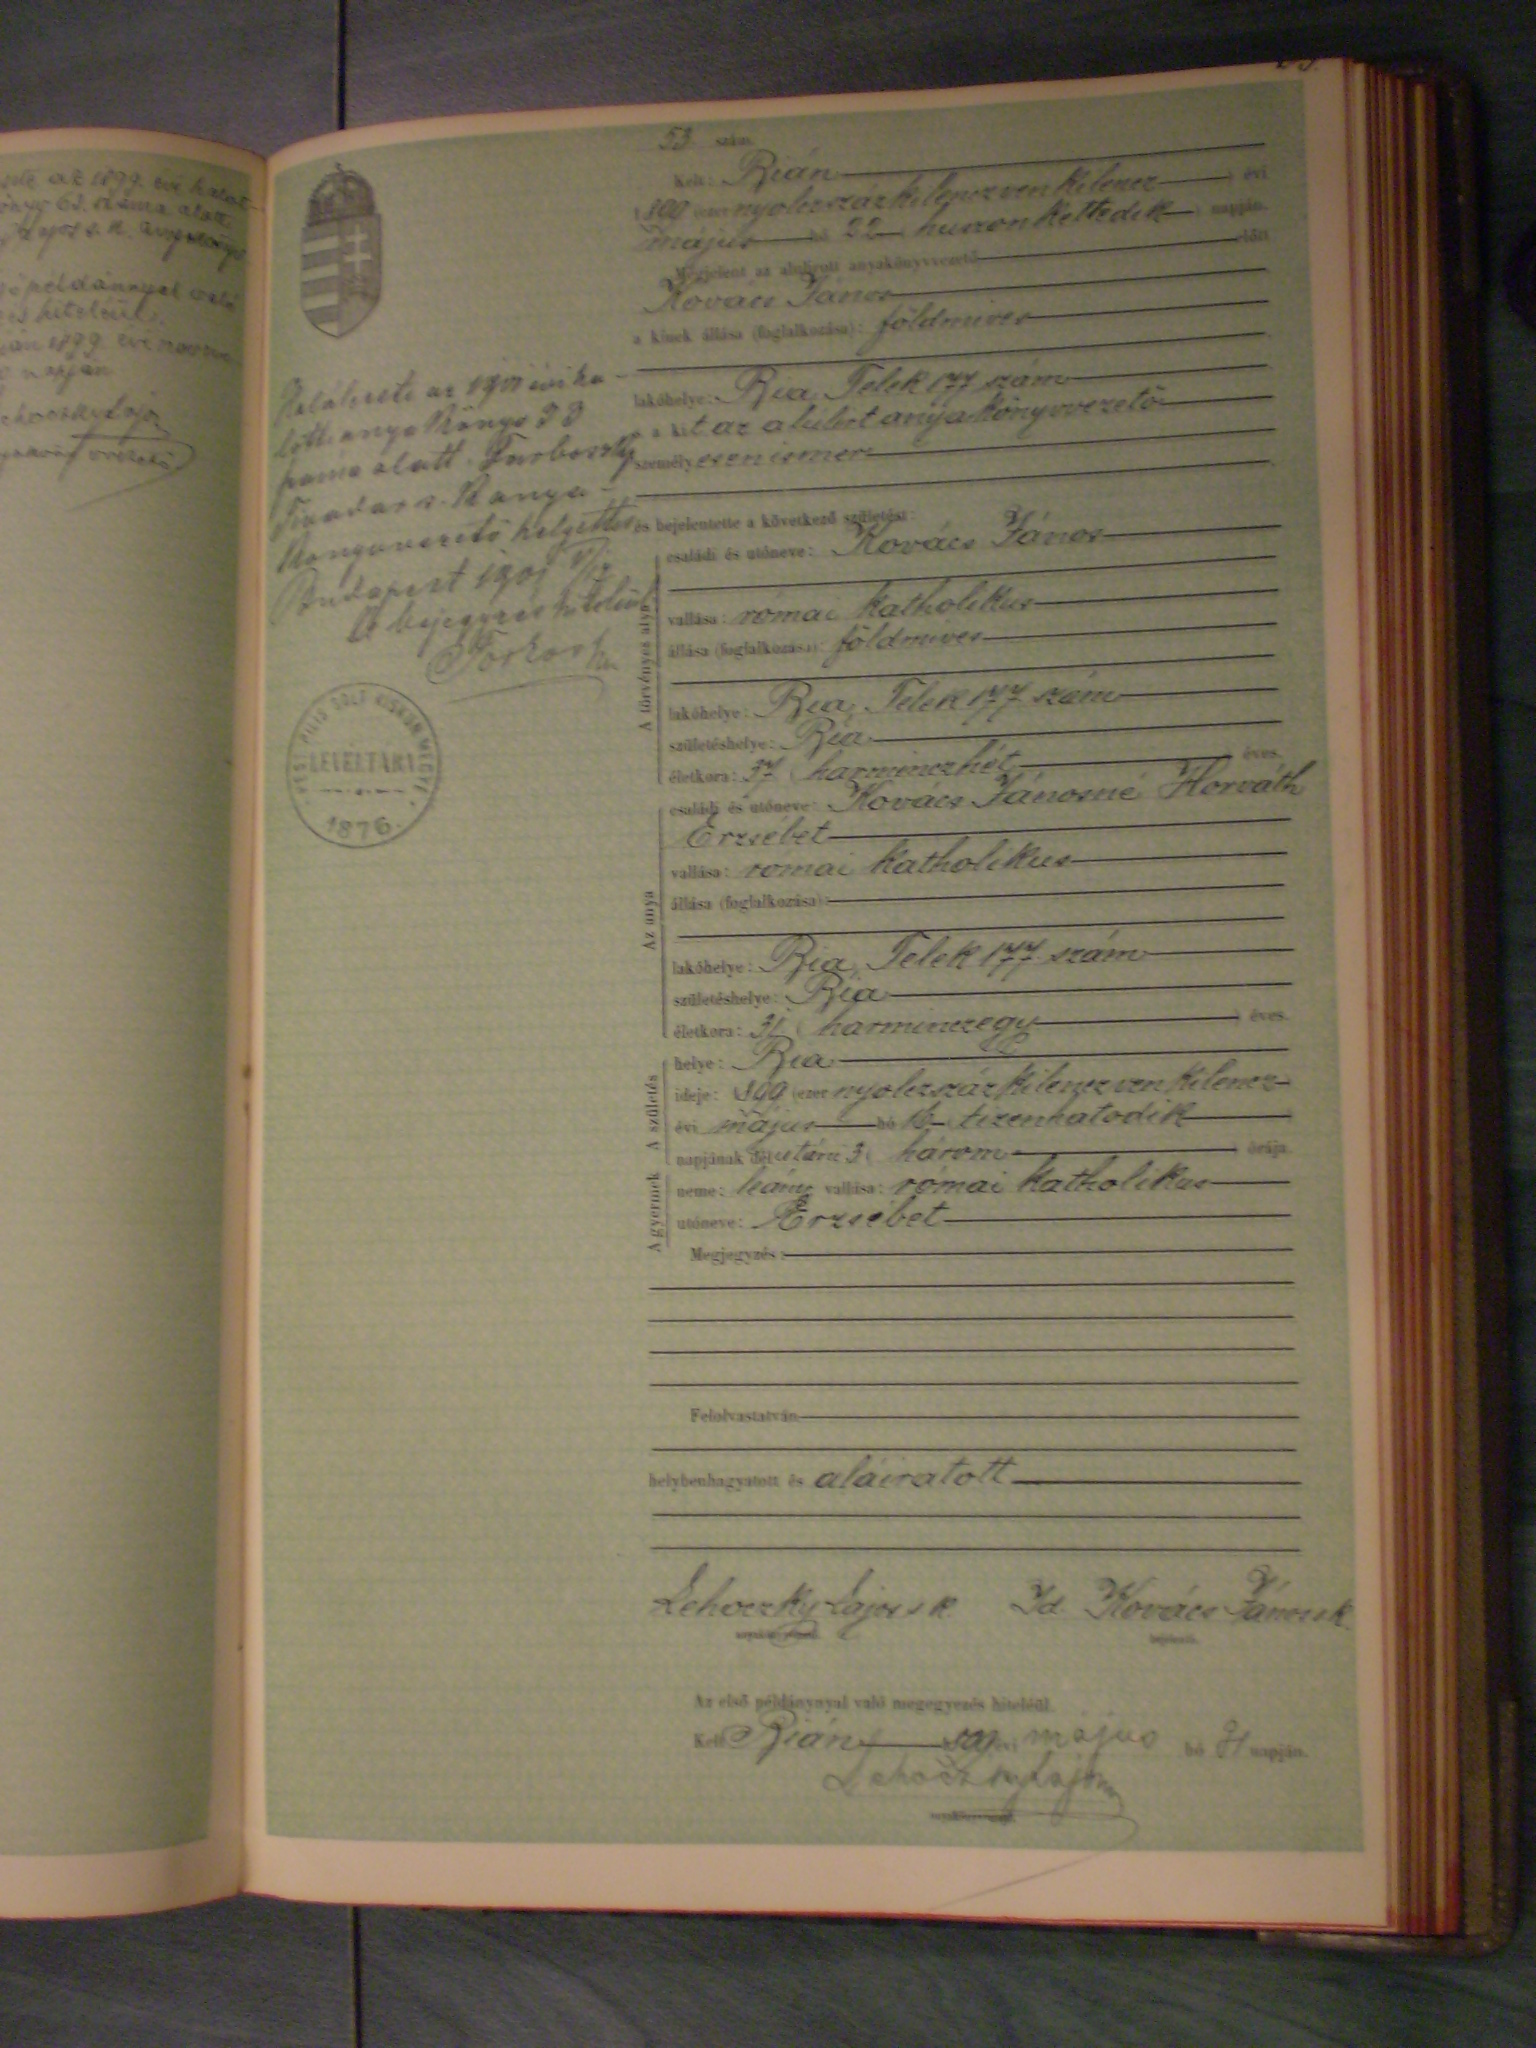 53 szám.
Kelt: Bián
1899 (ezer nyolczszázkilenczvenkilencz ) évi
május hó 22 ( huszonkettedik ) napján.
Megjelent az alulírott anyakönyvvezető előtt
Kovács János
a kinek állása (foglalkozása): földmives
lakóhelye: Bia, Telek 177 szám
a kit az alulirt anyakönyvvezető
személyesen ismer
és bejelentette a következő születést:
A törvényes atya
családi és utóneve: Kovács János
vallása: római katholikus
állása (foglalkozása): földmives
lakóhelye: Bia, Telek 177 szám
születéshelye: Bia
életkora: 37 ( harminczhét ) éves.
Az anya
családi és utóneve: Kovács Jánosné Horváth
Erzsébet
vallása: római katholikus
állása (foglalkozása):
lakóhelye: Bia, Telek 177 szám
születéshelye: Bia
életkora: 31 ( harminczegy ) éves.
A születés
helye: Bia
ideje: 1899 (ezer nyolczszázkilenczvenkilencz
évi május hó 16 tizenhatodik )
napjának délutáni 3 ( három ) órája.
A gyermek
neme: leány vallása: római katholikus
utóneve: Erzsébet
Megjegyzés:
Felolvastatván
helybenhagyatott és aláiratott
Lehoczky Lajos s k. Id. Kovács János s k.
anyakönyvvezető. bejelentő.
Az első példánynyal való megegyezés hiteléül.
Kelt Bián 1899 évi május hó 31 napján.
Lehoczky Lajos
anyakönyvvezető.
Halálesete az 1901 évi ha-
lotti anyakönyv 33
száma alatt.
Tivadar s. k. anya-
könyvvezető helyettes
Budapest 1901
A bejegyzés hiteléül
PEST PILIS SOLT KISKUN MEGYE
LEVÉLTÁRA
1876.
az 1899. évi halot-
63. száma alatt
Lajos s. k.
példánnyal való
hiteléül.
1899. évi
napján